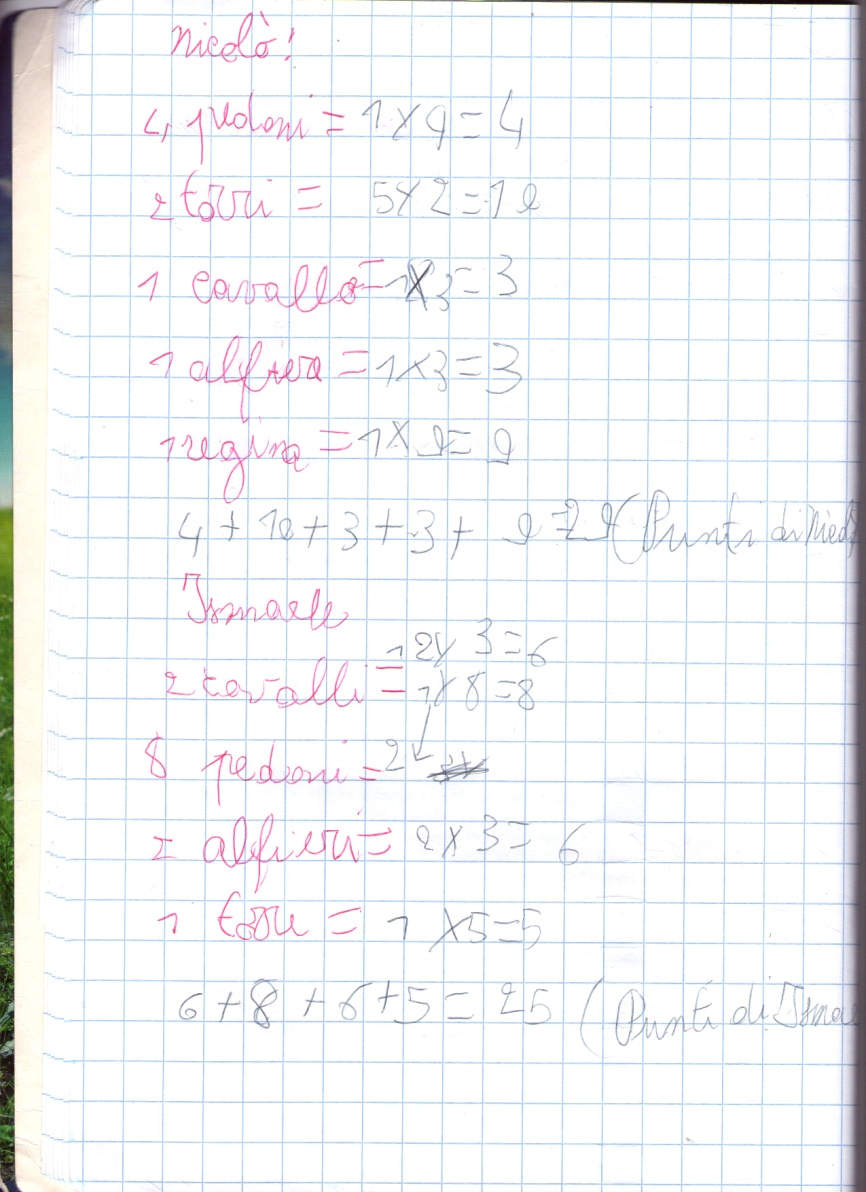 Nicolò!
4 pedoni = 1x4=4
2 torri = 5x2=10
1 cavallo=1x3=3
1 alfiere =1x3=3
1 regina =1x9=9
4+10+3+3+ 9=29(Punti di Nicol
Ismaele
1 2x3=6
2 cavalli= 1x8=8
8 pedoni=2
2 alfieri= 2x3= 6
1 torre = 1 x5=5
6+8+6+5= 25 (Punti di Ismae